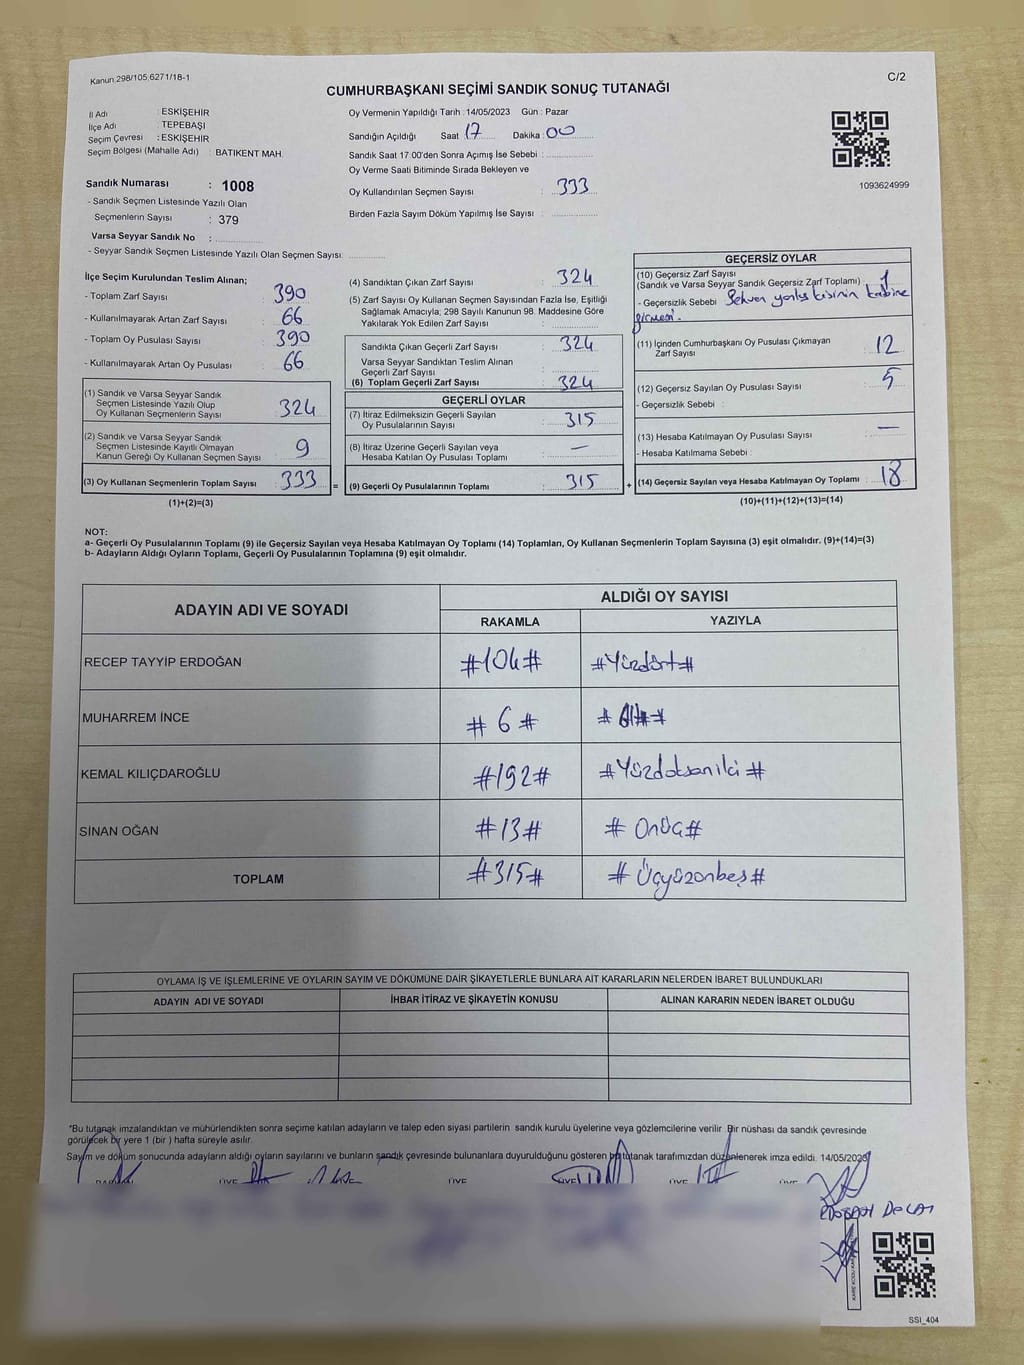 Kanun 298/105,6271/18-1
C/2
CUMHURBAŞKANI SEÇİMİ SANDIK SONUÇ TUTANAĞI
İl Adı : ESKİŞEHİR
İlçe Adı : TEPEBAŞI
Seçim Çevresi : ESKİŞEHİR
Seçim Bölgesi (Mahalle Adı) : BATIKENT MAH.
Sandık Numarası : 1008
- Sandık Seçmen Listesinde Yazılı Olan
Seçmenlerin Sayısı : 379
Varsa Seyyar Sandık No :
- Seyyar Sandık Seçmen Listesinde Yazılı Olan Seçmen Sayısı:
Oy Vermenin Yapıldığı Tarih : 14/05/2023 Gün : Pazar
Sandığın Açıldığı Saat 17 Dakika : 00
Sandık Saat 17:00'den Sonra Açımış İse Sebebi :
Oy Verme Saati Bitiminde Sırada Bekleyen ve
Oy Kullandırılan Seçmen Sayısı : 333
Birden Fazla Sayım Döküm Yapılmış İse Sayısı :
1093624999
İlçe Seçim Kurulundan Teslim Alınan;
- Toplam Zarf Sayısı : 390
- Kullanılmayarak Artan Zarf Sayısı : 66
- Toplam Oy Pusulası Sayısı : 390
- Kullanılmayarak Artan Oy Pusulası : 66
(1) Sandık ve Varsa Seyyar Sandık
Seçmen Listesinde Yazılı Olup
Oy Kullanan Seçmenlerin Sayısı : 324
(2) Sandık ve Varsa Seyyar Sandık
Seçmen Listesinde Kayıtlı Olmayan
Kanun Gereği Oy Kullanan Seçmen Sayısı : 9
(3) Oy Kullanan Seçmenlerin Toplam Sayısı : 333
(1)+(2)=(3)
(4) Sandıktan Çıkan Zarf Sayısı : 324
(5) Zarf Sayısı Oy Kullanan Seçmen Sayısından Fazla İse, Eşitliği
Sağlamak Amacıyla; 298 Sayılı Kanunun 98. Maddesine Göre
Yakılarak Yok Edilen Zarf Sayısı :
Sandıkta Çıkan Geçerli Zarf Sayısı : 324
Varsa Seyyar Sandıktan Teslim Alınan
Geçerli Zarf Sayısı :
(6) Toplam Geçerli Zarf Sayısı : 324
GEÇERLİ OYLAR
(7) İtiraz Edilmeksizin Geçerli Sayılan
Oy Pusulalarının Sayısı : 315
(8) İtiraz Üzerine Geçerli Sayılan veya
Hesaba Katılan Oy Pusulası Toplamı : —
= (9) Geçerli Oy Pusulalarının Toplamı : 315
GEÇERSİZ OYLAR
(10) Geçersiz Zarf Sayısı
(Sandık ve Varsa Seyyar Sandık Geçersiz Zarf Toplamı) : 1
- Geçersizlik Sebebi : Sehven yanlış kişinin kabine
girmesi.
(11) İçinden Cumhurbaşkanı Oy Pusulası Çıkmayan
Zarf Sayısı : 12
(12) Geçersiz Sayılan Oy Pusulası Sayısı : 5
- Geçersizlik Sebebi :
(13) Hesaba Katılmayan Oy Pusulası Sayısı : —
- Hesaba Katılmama Sebebi :
+ (14) Geçersiz Sayılan veya Hesaba Katılmayan Oy Toplamı : 18
(10)+(11)+(12)+(13)=(14)
NOT:
a- Geçerli Oy Pusulalarının Toplamı (9) ile Geçersiz Sayılan veya Hesaba Katılmayan Oy Toplamı (14) Toplamları, Oy Kullanan Seçmenlerin Toplam Sayısına (3) eşit olmalıdır. (9)+(14)=(3)
b- Adayların Aldığı Oyların Toplamı, Geçerli Oy Pusulalarının Toplamına (9) eşit olmalıdır.
ADAYIN ADI VE SOYADI
ALDIĞI OY SAYISI
RAKAMLA YAZIYLA
RECEP TAYYİP ERDOĞAN #104# #Yüzdört#
MUHARREM İNCE # 6 # # Altı #
KEMAL KILIÇDAROĞLU #192# #Yüzdoksaniki #
SİNAN OĞAN #13# # Onüç#
TOPLAM #315# # Üçyüzonbeş#
OYLAMA İŞ VE İŞLEMLERİNE VE OYLARIN SAYIM VE DÖKÜMÜNE DAİR ŞİKAYETLERLE BUNLARA AİT KARARLARIN NELERDEN İBARET BULUNDUKLARI
ADAYIN ADI VE SOYADI İHBAR İTİRAZ VE ŞİKAYETİN KONUSU ALINAN KARARIN NEDEN İBARET OLDUĞU
*Bu tutanak imzalandıktan ve mühürlendikten sonra seçime katılan adayların ve talep eden siyasi partilerin sandık kurulu üyelerine veya gözlemcilerine verilir. Bir nüshası da sandık çevresinde
görülecek bir yere 1 (bir) hafta süreyle asılır.
Sayım ve döküm sonucunda adayların aldığı oyların sayılarını ve bunların sandık çevresinde bulunanlara duyurulduğunu gösteren bu tutanak tarafımızdan düzenlenerek imza edildi. 14/05/2023
ÜYE ÜYE ÜYE ÜYE ÜYE
SSİ_404